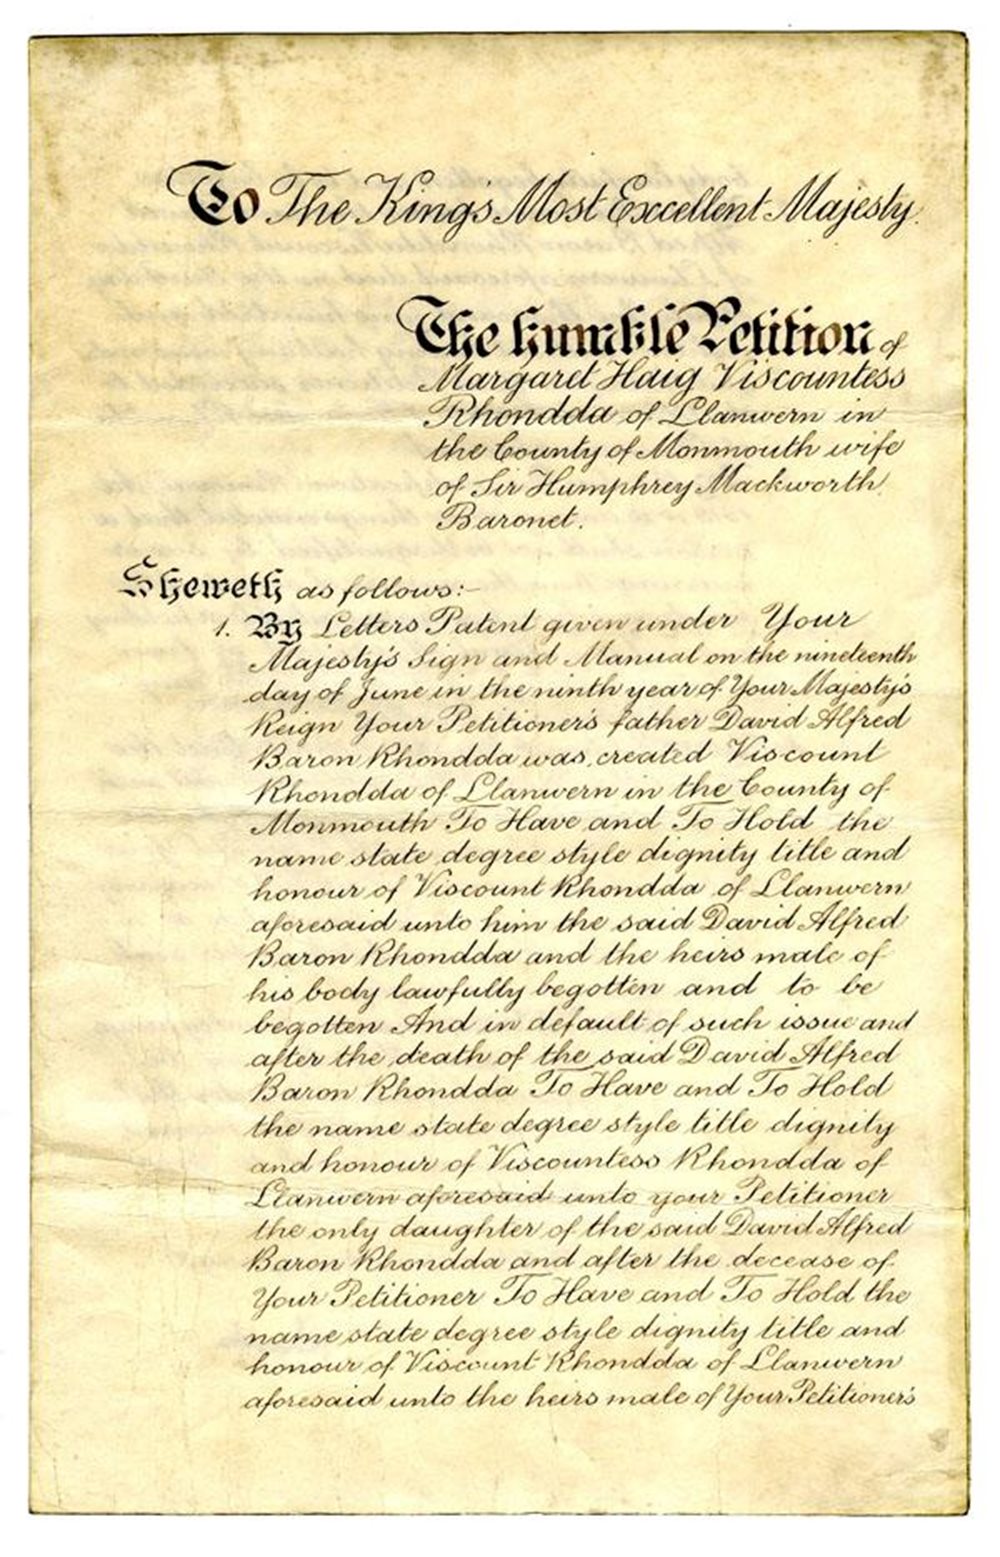 To The King's Most Excellent Majesty.
The Humble Petition of
Margaret Haig Viscountess
Rhondda of Llanwern in
the County of Monmouth wife
of Sir Humphrey Mackworth
Baronet.
Sheweth as follows:-
1. By Letters Patent given under Your
Majesty's Sign and Manual on the nineteenth
day of June in the ninth year of Your Majesty's
Reign Your Petitioner's father David Alfred
Baron Rhondda was created Viscount
Rhondda of Llanwern in the County of
Monmouth To Have and To Hold the
name state degree style dignity title and
honour of Viscount Rhondda of Llanwern
aforesaid unto him the said David Alfred
Baron Rhondda and the heirs male of
his body lawfully begotten and to be
begotten And in default of such issue and
after the death of the said David Alfred
Baron Rhondda To Have and To Hold
the name state degree style title dignity
and honour of Viscountess Rhondda of
Llanwern aforesaid unto your Petitioner
the only daughter of the said David Alfred
Baron Rhondda and after the decease of
Your Petitioner To Have and To Hold the
name state degree style dignity title and
honour of Viscount Rhondda of Llanwern
aforesaid unto the heirs male of Your Petitioner's